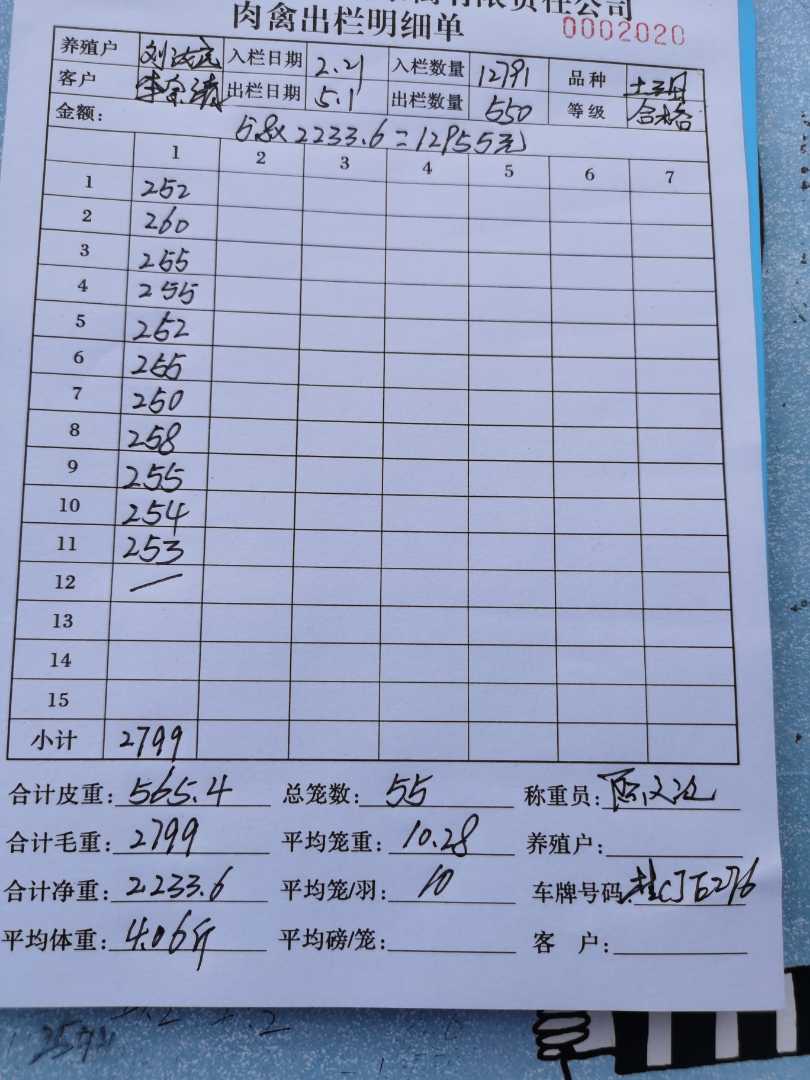 有限责任公司
肉禽出栏明细单 0002020
养殖户 入栏日期 2.21 入栏数量 12791 品种 土二
客户 出栏日期 5.1 出栏数量 550 等级 合格
金额: 5.8×2233.6=12955元
1 2 3 4 5 6 7
1 252
2 260
3 255
4 255
5 252
6 255
7 250
8 258
9 255
10 254
11 253
12 —
13
14
15
小计 2799
合计皮重: 565.4 总笼数: 55 称重员:
合计毛重: 2799 平均笼重: 10.28 养殖户:
合计净重: 2233.6 平均笼/羽: 10 车牌号码:
平均体重: 4.06斤 平均磅/笼: 客 户: